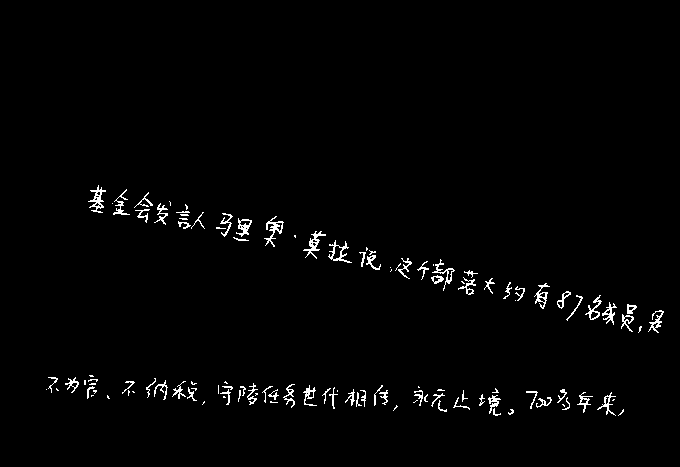 基金会发言人马里奥·莫拉说,这个部落大约有87名成员,是
不为官、不纳税,守陵任务世代相传,永无止境。700多年来,